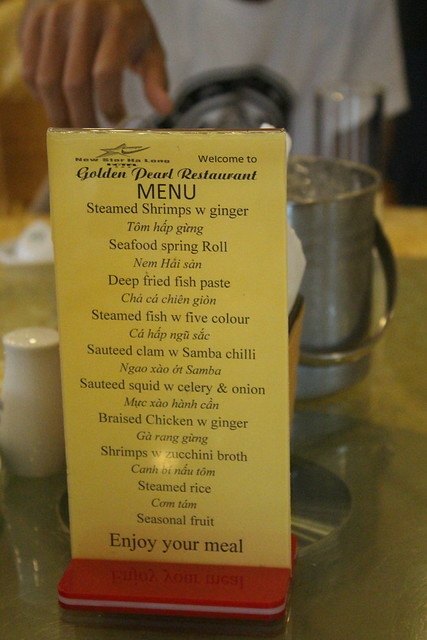 New Star Ha Long
Welcome to
Golden Pearl Restaurant
MENU
Steamed Shrimps w ginger
Tôm hấp gừng
Seafood spring Roll
Nem Hải sản
Deep fried fish paste
Chả cá chiên giòn
Steamed fish w five colour
Cá hấp ngũ sắc
Sauteed clam w Samba chilli
Ngao xào ớt Samba
Sauteed squid w celery & onion
Mực xào hành cần
Braised Chicken w ginger
Gà rang gừng
Shrimps w zucchini broth
Canh bí nấu tôm
Steamed rice
Cơm tám
Seasonal fruit
Enjoy your meal